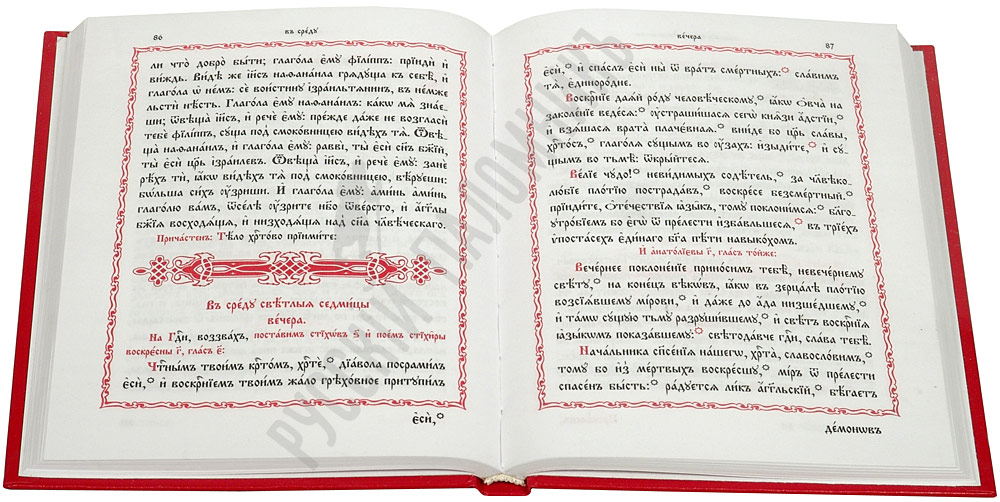 86
въ сре́дꙋ
ли что̀ добро̀ бы́ти; глаго́ла є҆мꙋ̀ фїлі́ппъ: прїидѝ и҆
ви́ждь. Ви́дѣ же і҆и҃съ наѳана́ила грѧдꙋ́ща къ себѣ̀, и҆
глаго́ла ѡ҆ не́мъ: сѐ вои́стинꙋ і҆зра́ильтѧнинъ, въ не́мже
льстѝ нѣ́сть. Глаго́ла є҆мꙋ̀ наѳана́илъ: ка́кѡ мѧ̀ зна́е-
ши; ѿвѣща̀ і҆и҃съ, и҆ речѐ є҆мꙋ̀: пре́жде да́же не возгласѝ
тебѐ фїлі́ппъ, сꙋ́ща под̾ смоко́вницею ви́дѣхъ тѧ̀. Ѿвѣ-
ща̀ наѳана́илъ, и҆ глаго́ла є҆мꙋ̀: равві̀, ты̀ є҆сѝ сн҃ъ бж҃їй,
ты̀ є҆сѝ цр҃ь і҆зра́илевъ. Ѿвѣща̀ і҆и҃съ, и҆ речѐ є҆мꙋ̀: занѐ
рѣ́хъ ти, ꙗ҆́кѡ ви́дѣхъ тѧ̀ под̾ смоко́вницею, вѣ́рꙋеши:
бѡ́льша си́хъ ᲂу҆́зриши. И҆ глаго́ла є҆мꙋ̀: а҆ми́нь а҆ми́нь
глаго́лю ва́мъ, ѿсе́лѣ ᲂу҆́зрите не́бо ѿве́рсто, и҆ а҆́гг҃лы
бж҃їѧ восходѧ́щѧ, и҆ низходѧ́щѧ над̾ сн҃а чл҃вѣ́ческаго.
Прича́стенъ: Тѣ́ло хр҃то́во прїими́те:
Въ сре́дꙋ свѣ́тлыѧ седми́цы
ве́чера.
На Гдⷭ҇и, воззва́хъ, поста́вимъ стїхѡ́въ ѕ҃ и҆ пое́мъ стїхи̑ры
воскрє́сны г҃, гла́съ є҃:
Чⷭ҇тны́мъ твои́мъ крⷭ҇то́мъ, хрⷭ҇тѐ, дїа́вола посрами́лъ
є҆сѝ, и҆ воскрⷭ҇нїемъ твои́мъ жа́ло грѣхо́вное притꙋпи́лъ
є҆сѝ,
ве́чера
87
є҆сѝ, и҆ спа́слъ є҆сѝ ны̀ ѿ вра́тъ сме́ртныхъ: сла́вимъ
тѧ̀, є҆диноро́дне.
Воскрⷭ҇нїе даѧ́й ро́дꙋ человѣ́ческомꙋ, ꙗ҆́кѡ ѻ҆вча̀ на
заколе́нїе веде́сѧ: ᲂу҆страши́шасѧ сегѡ̀ кнѧ̑зи а҆́дстїи,
и҆ взѧ́шасѧ врата̀ плачє́внаѧ. вни́де бо цр҃ь сла́вы,
хрⷭ҇то́съ, глаго́лѧ сꙋ́щымъ во ᲂу҆́захъ: и҆зыди́те, и҆ сꙋ́-
щымъ во тьмѣ̀: ѿкры́йтесѧ.
Ве́лїе чꙋ́до! неви́димыхъ содѣ́тель, за чл҃вѣко-
лю́бїе пло́тїю пострада́въ, воскре́се безсме́ртный.
прїиди́те, ѻ҆те́чєствїѧ ꙗ҆зы̑къ, томꙋ̀ поклони́мсѧ: бл҃го-
ᲂу҆тро́бїемъ бо є҆гѡ̀ ѿ пре́лести и҆зба́вльшесѧ, въ трїе́хъ
ѵ҆поста́сехъ є҆ди́наго бг҃а пѣ́ти навыко́хомъ.
И҆ а҆нато́лїевы г҃, гла́съ то́йже:
Вече́рнее поклоне́нїе прино́симъ тебѣ̀, невече́рнемꙋ
свѣ́тꙋ, на коне́цъ вѣкѡ́въ, ꙗ҆́кѡ въ зерца́лѣ пло́тїю
возсїѧ́вшемꙋ мі́рови, и҆ да́же до а҆́да низше́дшемꙋ,
и҆ та́мѡ сꙋ́щꙋю тмꙋ̀ разрꙋши́вшемꙋ, и҆ свѣ́тъ воскрⷭ҇нїѧ
ꙗ҆зы́кѡмъ показа́вшемꙋ: свѣтода́вче гдⷭ҇и, сла́ва тебѣ̀.
Нача́льника сп҃се́нїѧ на́шегѡ, хрⷭ҇та̀, славосло́вимъ,
томꙋ́ бо и҆з̾ ме́ртвыхъ воскре́сшꙋ, мі́ръ ѿ пре́лести
спасе́нъ бы́сть: ра́дꙋетсѧ ли́къ а҆́гг҃льскїй, бѣ́гаетъ
де́монѡвъ
РУССКИЙ ПАЛОМНИКЪ